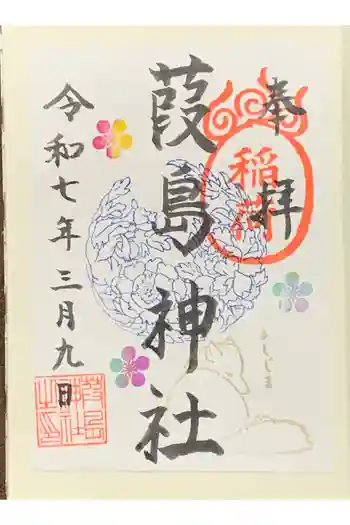 奉拝
稲荷
葭島神社
よししま
令和七年三月九日